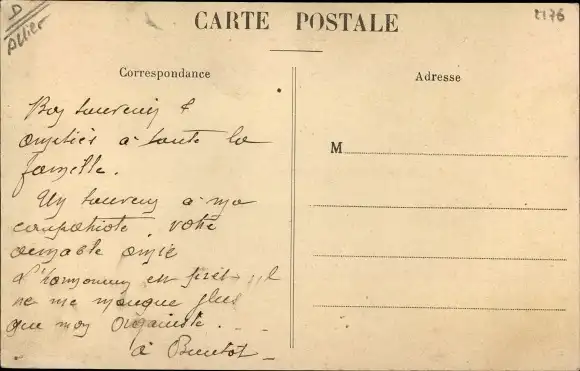 D
Allier
2176
CARTE POSTALE
Correspondance
Adresse
M
Bon souvenir &
amitiés à toute la
famille.
Un souvenir à ma
compatriote, votre
aimable amie
L'harmonium est prêt il
ne me manque plus
que mon organiste . - -
à Bientot -